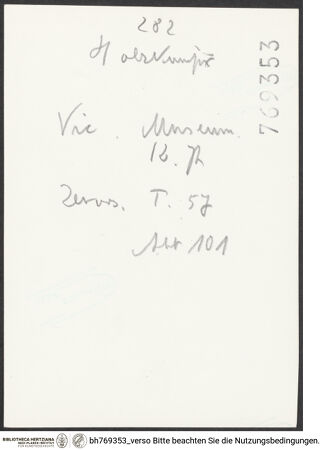 282
769353
Vic. Museum.
Zervos. T. 57
Abb 101
BIBLIOTHECA HERTZIANA
MAX-PLANCK-INSTITUT
FÜR KUNSTGESCHICHTE
bh769353_verso Bitte beachten Sie die Nutzungsbedingungen.